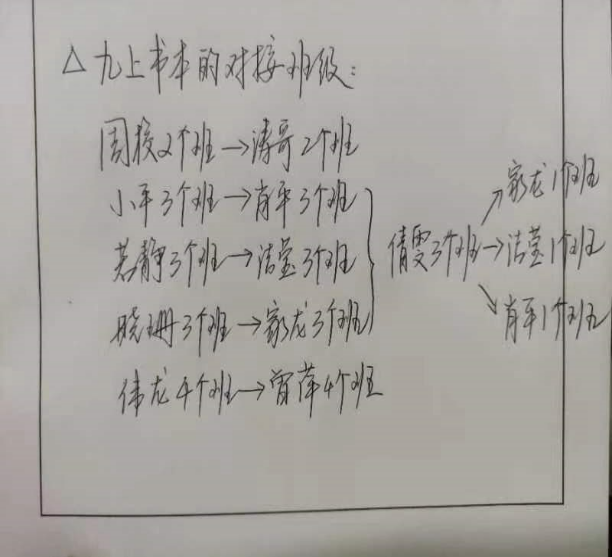 △九上书本的对接班级:
周校2个班→涛哥2个班
小平3个班→肖平3个班
若静3个班→洁莹3个班
晓珊3个班→家龙3个班
伟龙4个班→曾萍4个班
倩雯3个班→洁莹1个班
→家龙1个班
→肖平1个班